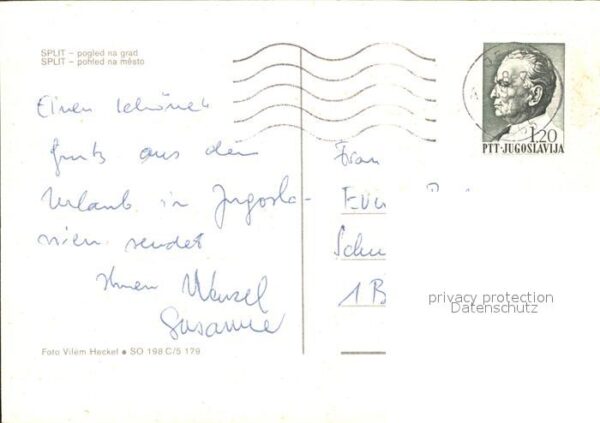 SPLIT – pogled na grad
SPLIT – pohled na město
Einen schönen
Gruß aus dem
Urlaub in Jugosla-
wien sendet
Ihnen Wenzel
Susanne
Foto Vilém Heckel ● SO 198 C/5 179
1.20
PTT-JUGOSLAVIJA
Frau
Schu
1 B
privacy protection
Datenschutz